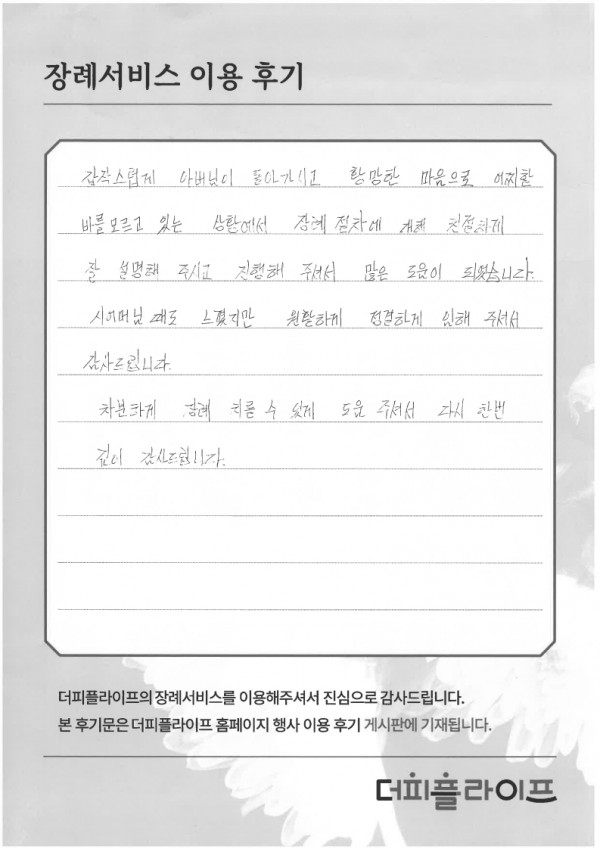 장례서비스 이용 후기
갑작스럽게 아버님이 돌아가시고 황망한 마음으로 어찌할
바를 모르고 있는 상황에서 장례 절차에 대해 친절하게
잘 설명해 주시고 진행해 주셔서 많은 도움이 되었습니다.
시어머님 때도 느꼈지만 원활하게 정결하게 임해 주셔서
감사드립니다.
차분하게 장례 치를 수 있게 도움 주셔서 다시 한번
깊이 감사드립니다.
더피플라이프의 장례서비스를 이용해주셔서 진심으로 감사드립니다.
본 후기문은 더피플라이프 홈페이지 행사 이용 후기 게시판에 기재됩니다.
더피플라이프